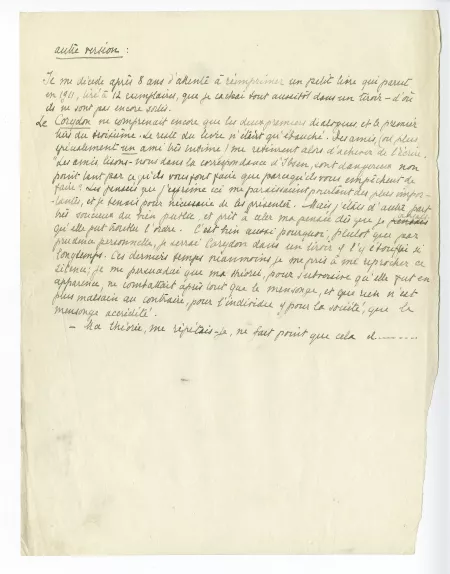 autre version :
Je me décide après 8 ans d'attente à réimprimer un petit livre qui parut
en 1911, tiré à 12 exemplaires, que je cachai tout aussitôt dans un tiroir — d'où
ils ne sont pas encore sortis.
Le Corydon ne comprenait encore que les deux premiers dialogues, et le premier
tiers du troisième. Le reste du livre n'était qu'ébauché. Des amis, (ou plus
spécialement un ami très intime) me retinrent alors d'achever de l'écrire.
"Les amis, lisons-nous dans la correspondance d'Ibsen, sont dangereux non
point tant par ce qu'ils vous font faire que par ce qu'ils vous empêchent de
faire". Les pensées que j'exprime ici me paraissaient pourtant des plus impor-
-tantes, et je tenais pour nécessaire de les présenter. Mais j'étais d'autre part
très soucieux du bien public, et prêt à celer ma pensée dès que je
qu'elle pût troubler l'ordre. C'est bien aussi pourquoi, plutôt que par
prudence personnelle, je serrai Corydon dans un tiroir et l'y étouffai si
longtemps. Ces derniers temps néanmoins je me pris à me reprocher ce
silence; je me persuadai que ma théorie, pour subversive qu'elle fût en
apparence, ne combattait après tout que le mensonge, et que rien n'est
plus malsain au contraire, pour l'individu et pour la société, que le
mensonge accrédité.
— Ma théorie, me répétais-je, ne fait point que cela d........